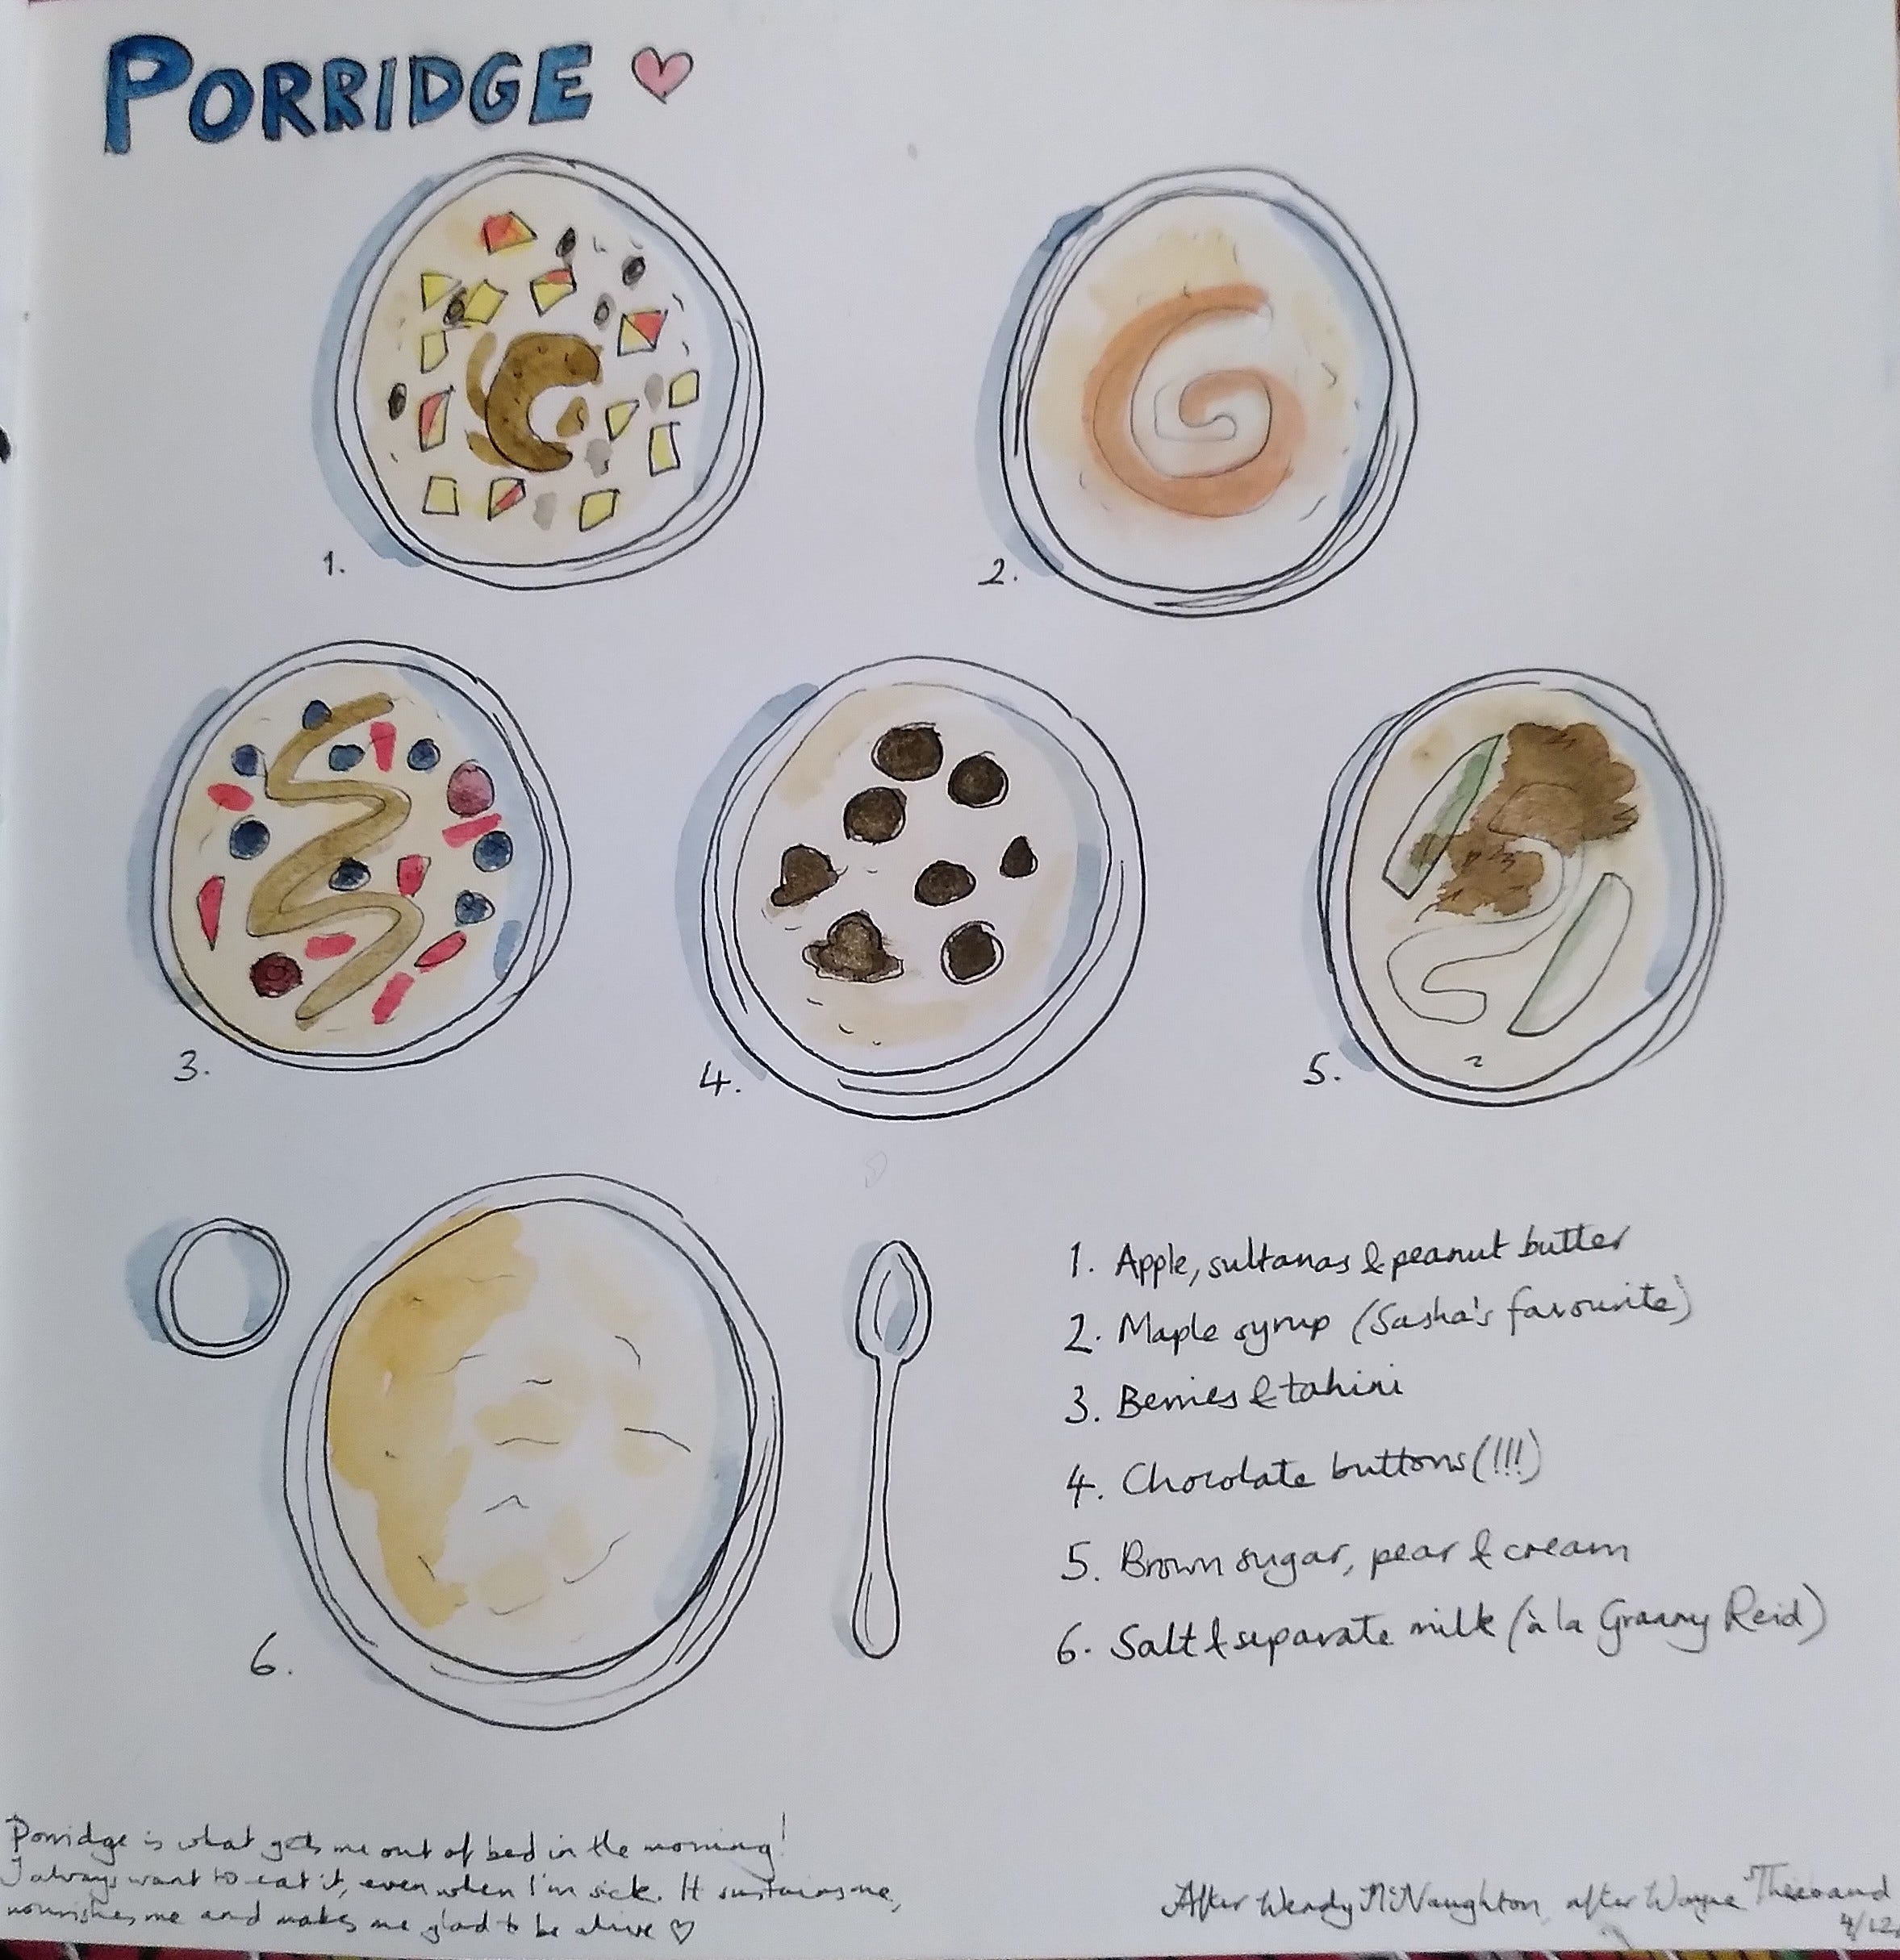 PORRIDGE ♡
1.
2.
3.
4.
5.
6.
1. Apple, sultanas & peanut butter
2. Maple syrup (Sasha's favourite)
3. Berries & tahini
4. Chocolate buttons (!!!)
5. Brown sugar, pear & cream
6. Salt & separate milk (à la Granny Reid)
Porridge is what gets me out of bed in the morning!
I always want to eat it, even when I'm sick. It sustains me,
nourishes me and makes me glad to be alive ♡
After Wendy McNaughton, after Wayne
4/12